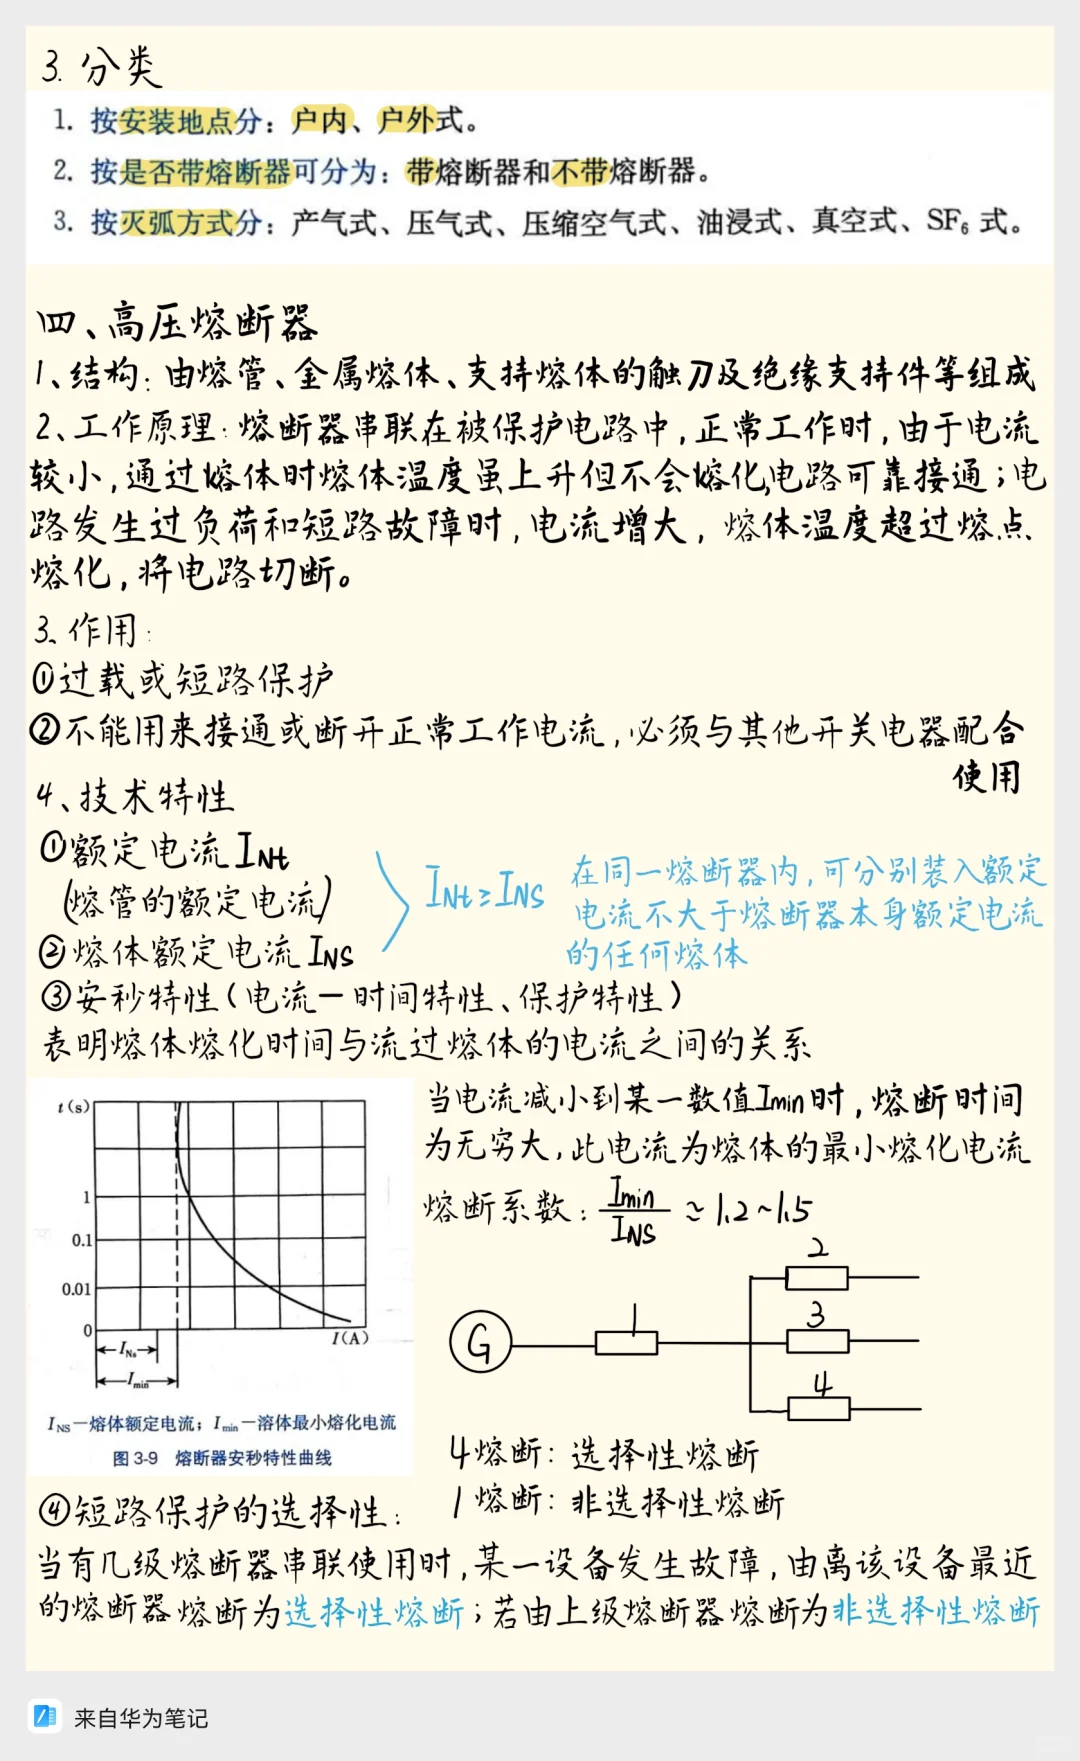 3. 分类
1. 按安装地点分：户内、户外式。
2. 按是否带熔断器可分为：带熔断器和不带熔断器。
3. 按灭弧方式分：产气式、压气式、压缩空气式、油浸式、真空式、SF₆ 式。
四、高压熔断器
1、结构：由熔管、金属熔体、支持熔体的触刀及绝缘支持件等组成
2、工作原理：熔断器串联在被保护电路中，正常工作时，由于电流
较小，通过熔体时熔体温度虽上升但不会熔化，电路可靠接通；电
路发生过负荷和短路故障时，电流增大，熔体温度超过熔点
熔化，将电路切断。
3、作用：
①过载或短路保护
②不能用来接通或断开正常工作电流，必须与其他开关电器配合
使用
4、技术特性
①额定电流 INt
(熔管的额定电流)
②熔体额定电流 INS
INt≥INS
在同一熔断器内，可分别装入额定
电流不大于熔断器本身额定电流
的任何熔体
③安秒特性（电流一时间特性、保护特性）
表明熔体熔化时间与流过熔体的电流之间的关系
t(s)
1
0.1
0.01
0
I(A)
INs
Imin
INS—熔体额定电流；Imin—溶体最小熔化电流
图 3-9 熔断器安秒特性曲线
当电流减小到某一数值Imin时，熔断时间
为无穷大，此电流为熔体的最小熔化电流
熔断系数：Imin/INS ≈ 1.2~1.5
G
1
2
3
4
4熔断：选择性熔断
1熔断：非选择性熔断
④短路保护的选择性：
当有几级熔断器串联使用时，某一设备发生故障，由离该设备最近
的熔断器熔断为选择性熔断；若由上级熔断器熔断为非选择性熔断
来自华为笔记